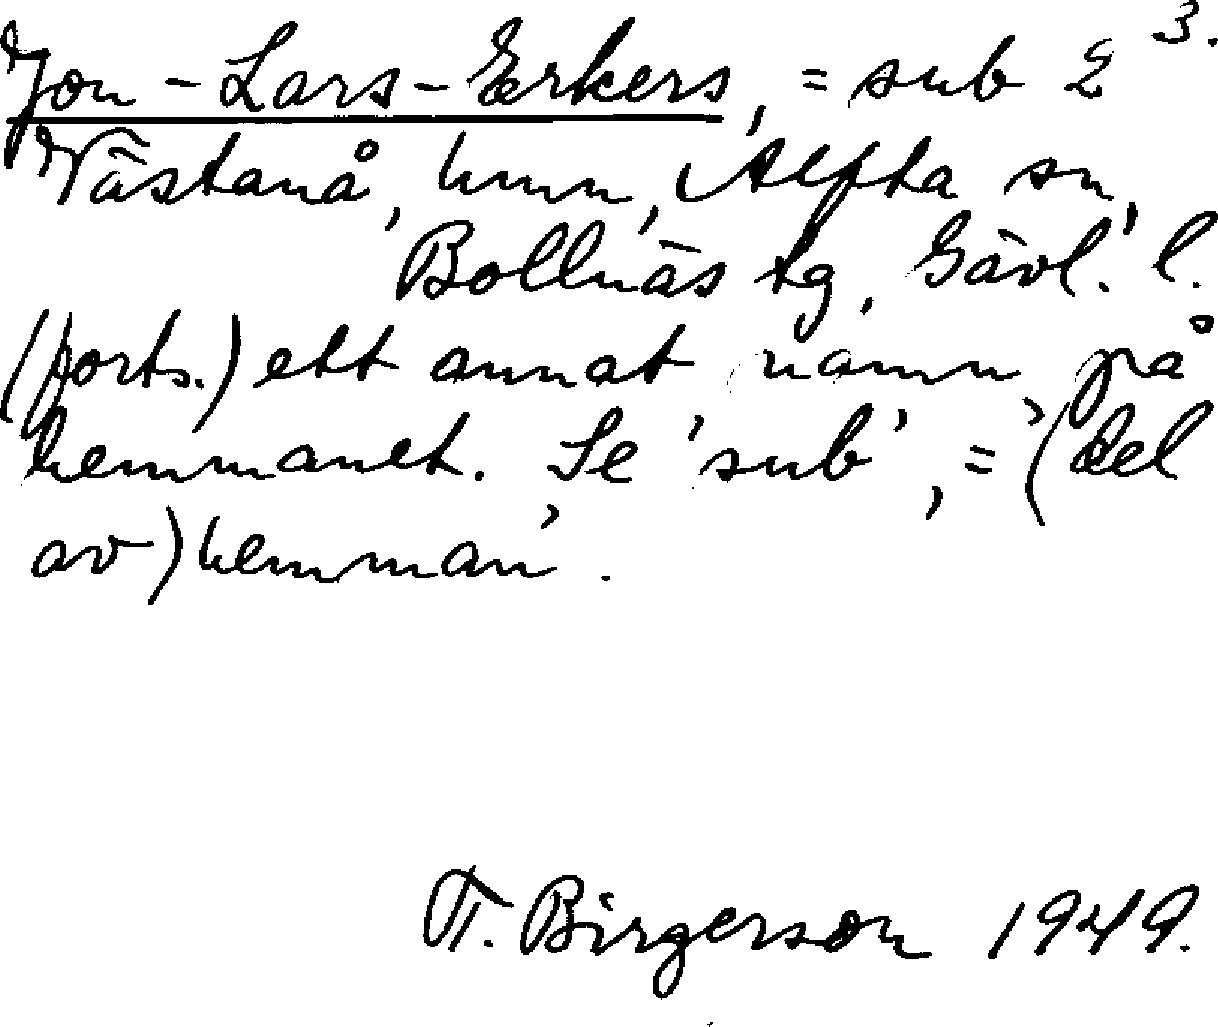 3.
Jon-Lars-Erkers, = sub 2
Västanå, hmn, Alfta sn,
Bollnäs tg, Gävl. l.
(forts.) ett annat namn på
hemmanet. Se 'sub', = '(del
av) hemman'.
T. Birgerson 1949.